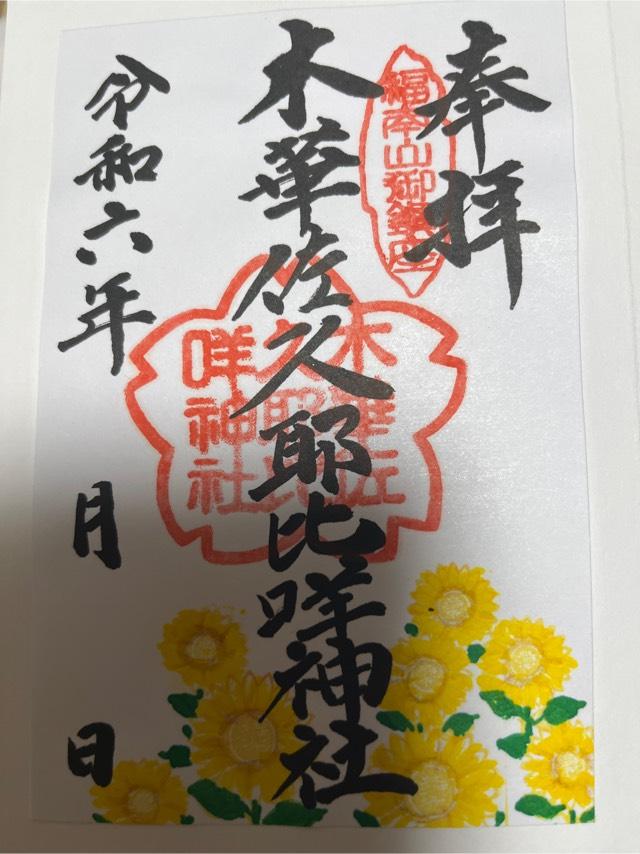 奉拝
福本山御鎮座
木華佐久耶比咩神社
木華佐
久耶比
咩神社
令和六年
月
日